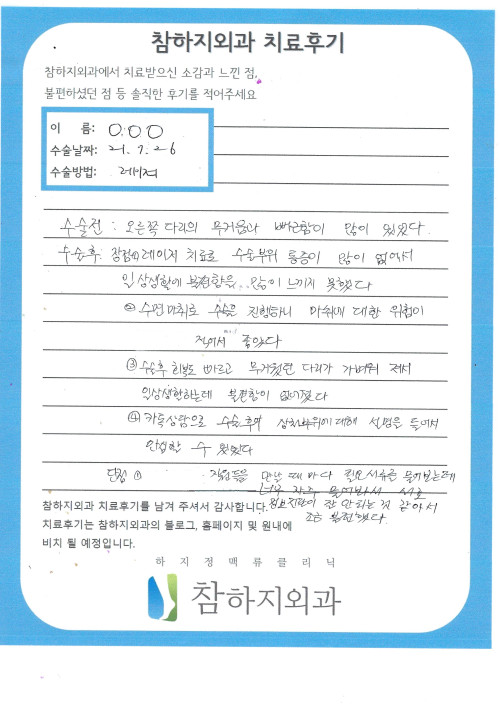 참하지외과 치료후기
참하지외과에서 치료받으신 소감과 느낀 점,
불편하셨던 점 등 솔직한 후기를 적어주세요
이 름: O.O O
수술날짜: 21. 7. 26
수술방법: 레이저
수술전 : 오른쪽 다리의 무거움과 뻐근함이 많이 있었다.
수술후: 장점① 레이저 치료로 수술부위 통증이 많이 없어서
일상생활에 불편함을 많이 느끼지 못했다
② 수면마취로 수술을 진행하니 마취에 대한 위험이
적어서 좋았다
③ 수술후 회복도 빠르고 무거웠던 다리가 가벼워 져서
일상생활하는데 불편함이 없어졌다
④ 카톡상담으로 수술후의 상처부위에 대해 설명을 들어서
안심할 수 있었다
단점 ① 직원들을 만날 때 마다 필요서류를 물어보는데
너무 자주 물어봐서 서로
정보전달이 잘 안되는 것 같아서
조금 불편했다.
참하지외과 치료후기를 남겨 주셔서 감사합니다.
치료후기는 참하지외과의 블로그, 홈페이지 및 원내에
비치 될 예정입니다.
하지정맥류클리닉
참하지외과